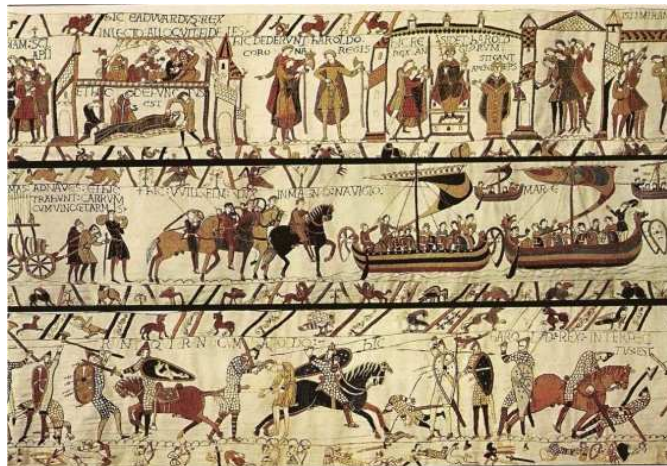 HIC EADVVARDVS:REX
IN LECTO:ALLOQVIT:FIDELES:
ET HIC:DEFVNCTVS
EST
HIC DEDERVNT:HAROLDO:
CORO NA REGIS
HIC RESIDET:HAROLD
REX:ANGLORVM:
STIGANT
ARCHIEPS
MAS:AD NAVES:ET HIC
TRAHVNT:CARRVM
CVM VINO:ET ARMIS:
+HIC:VVILLELM:DVX IN MAGNO:NAVIGIO:
MARE
CVM HAROLDO: HIC
HAROLD:REX:INTERFEC
TVS:EST